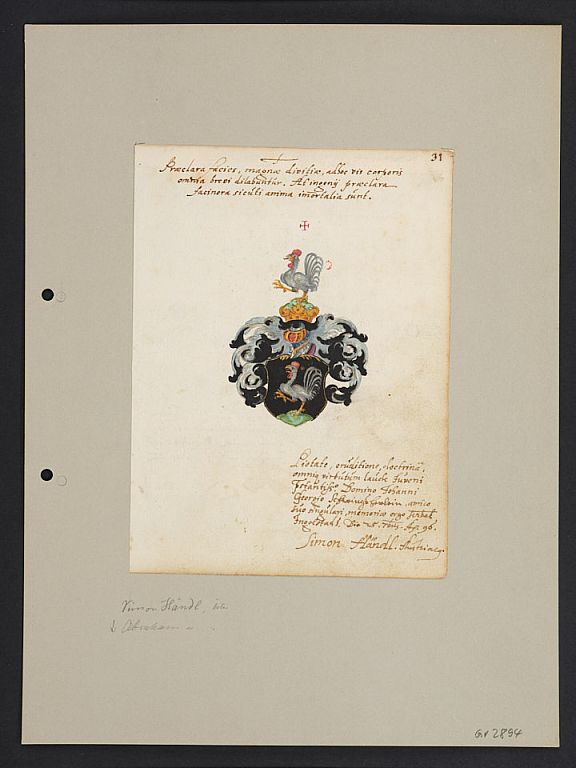 31
Præclara facies, magnæ divitiæ, adhoc vis corporis
omnia brevi dilabuntur. At ingenij præclara
facinora sicuti anima imortalia sunt.
Pietate, eruditione, doctrina,
omniq virtutum laude Juveni
Domino Johanni
Georgio amico
suo singulari, memoriæ ergo
Ingolstadt. 96.
Simon Händl.
Simon Händl,
Abraham
Gv 2894